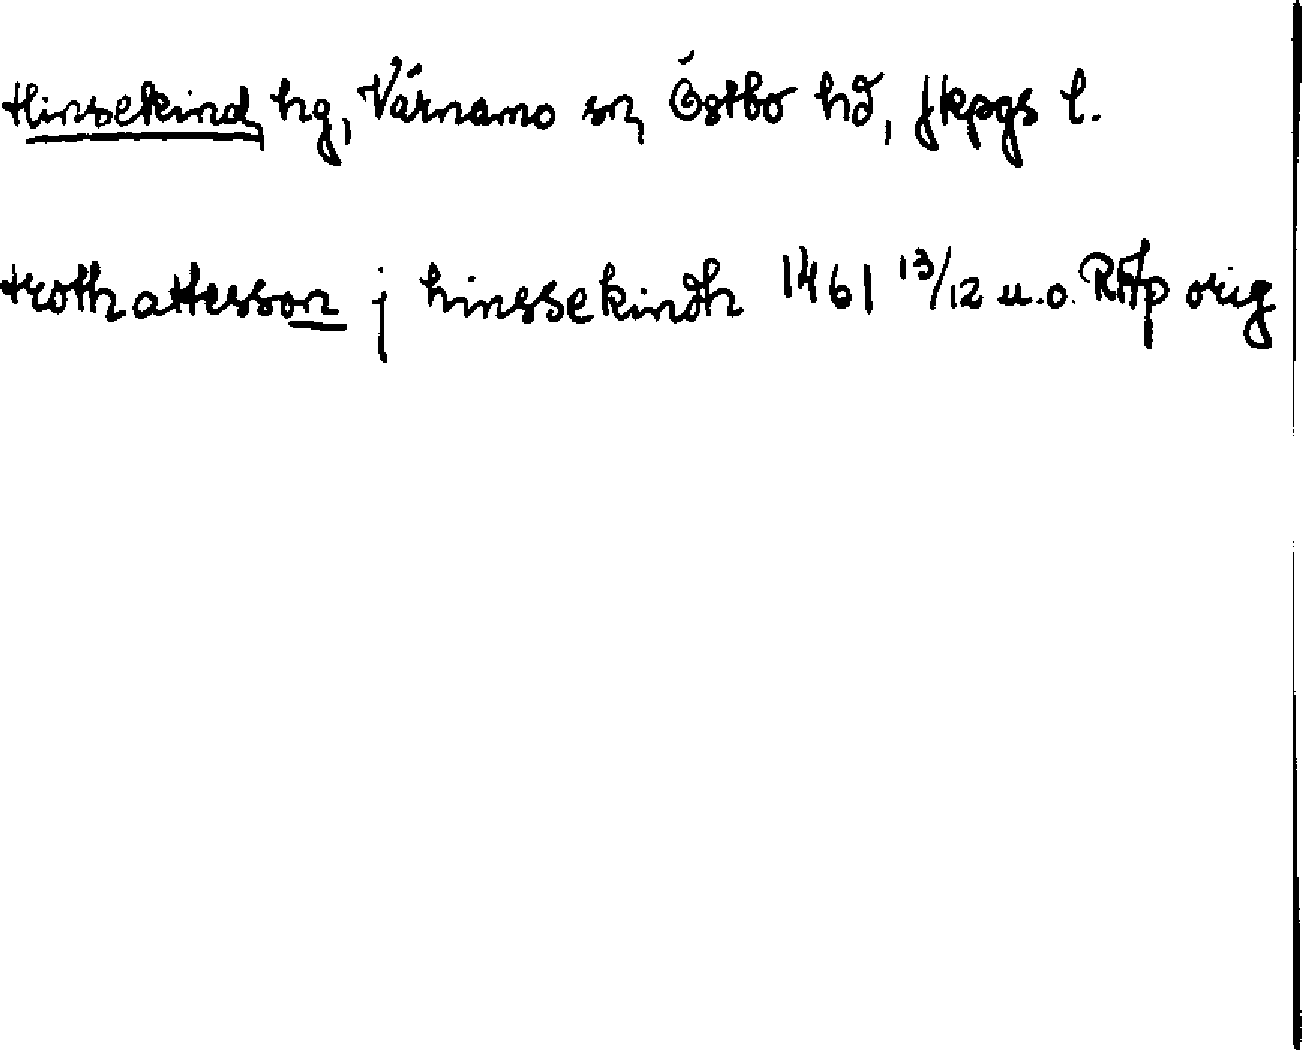 Hinsekind, hg, Värnamo sn, Östbo hd, Jkpgs l.
troth attesson j hinssekindh 1461 13/12 u.o. RAp orig